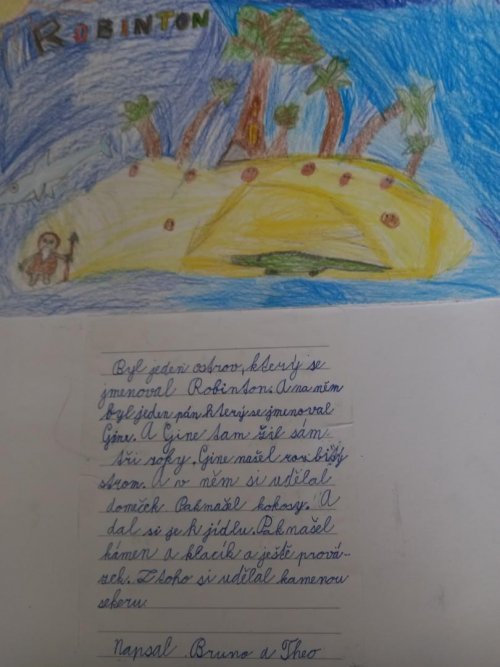 ROBINTON
Byl jeden ostrov, který se
jmenoval Robinton. A na něm
byl jeden pán, který se jmenoval
Gine. A Gine tam žil sám
tři roky. Gine našel
strom. A v něm si udělal
domeček. Pak našel kokosy. A
dal si je k jídlu. Pak našel
kámen a klacík a ještě prová-
zek. Z toho si udělal kamenou
sekeru
Napsal Bruno a Theo